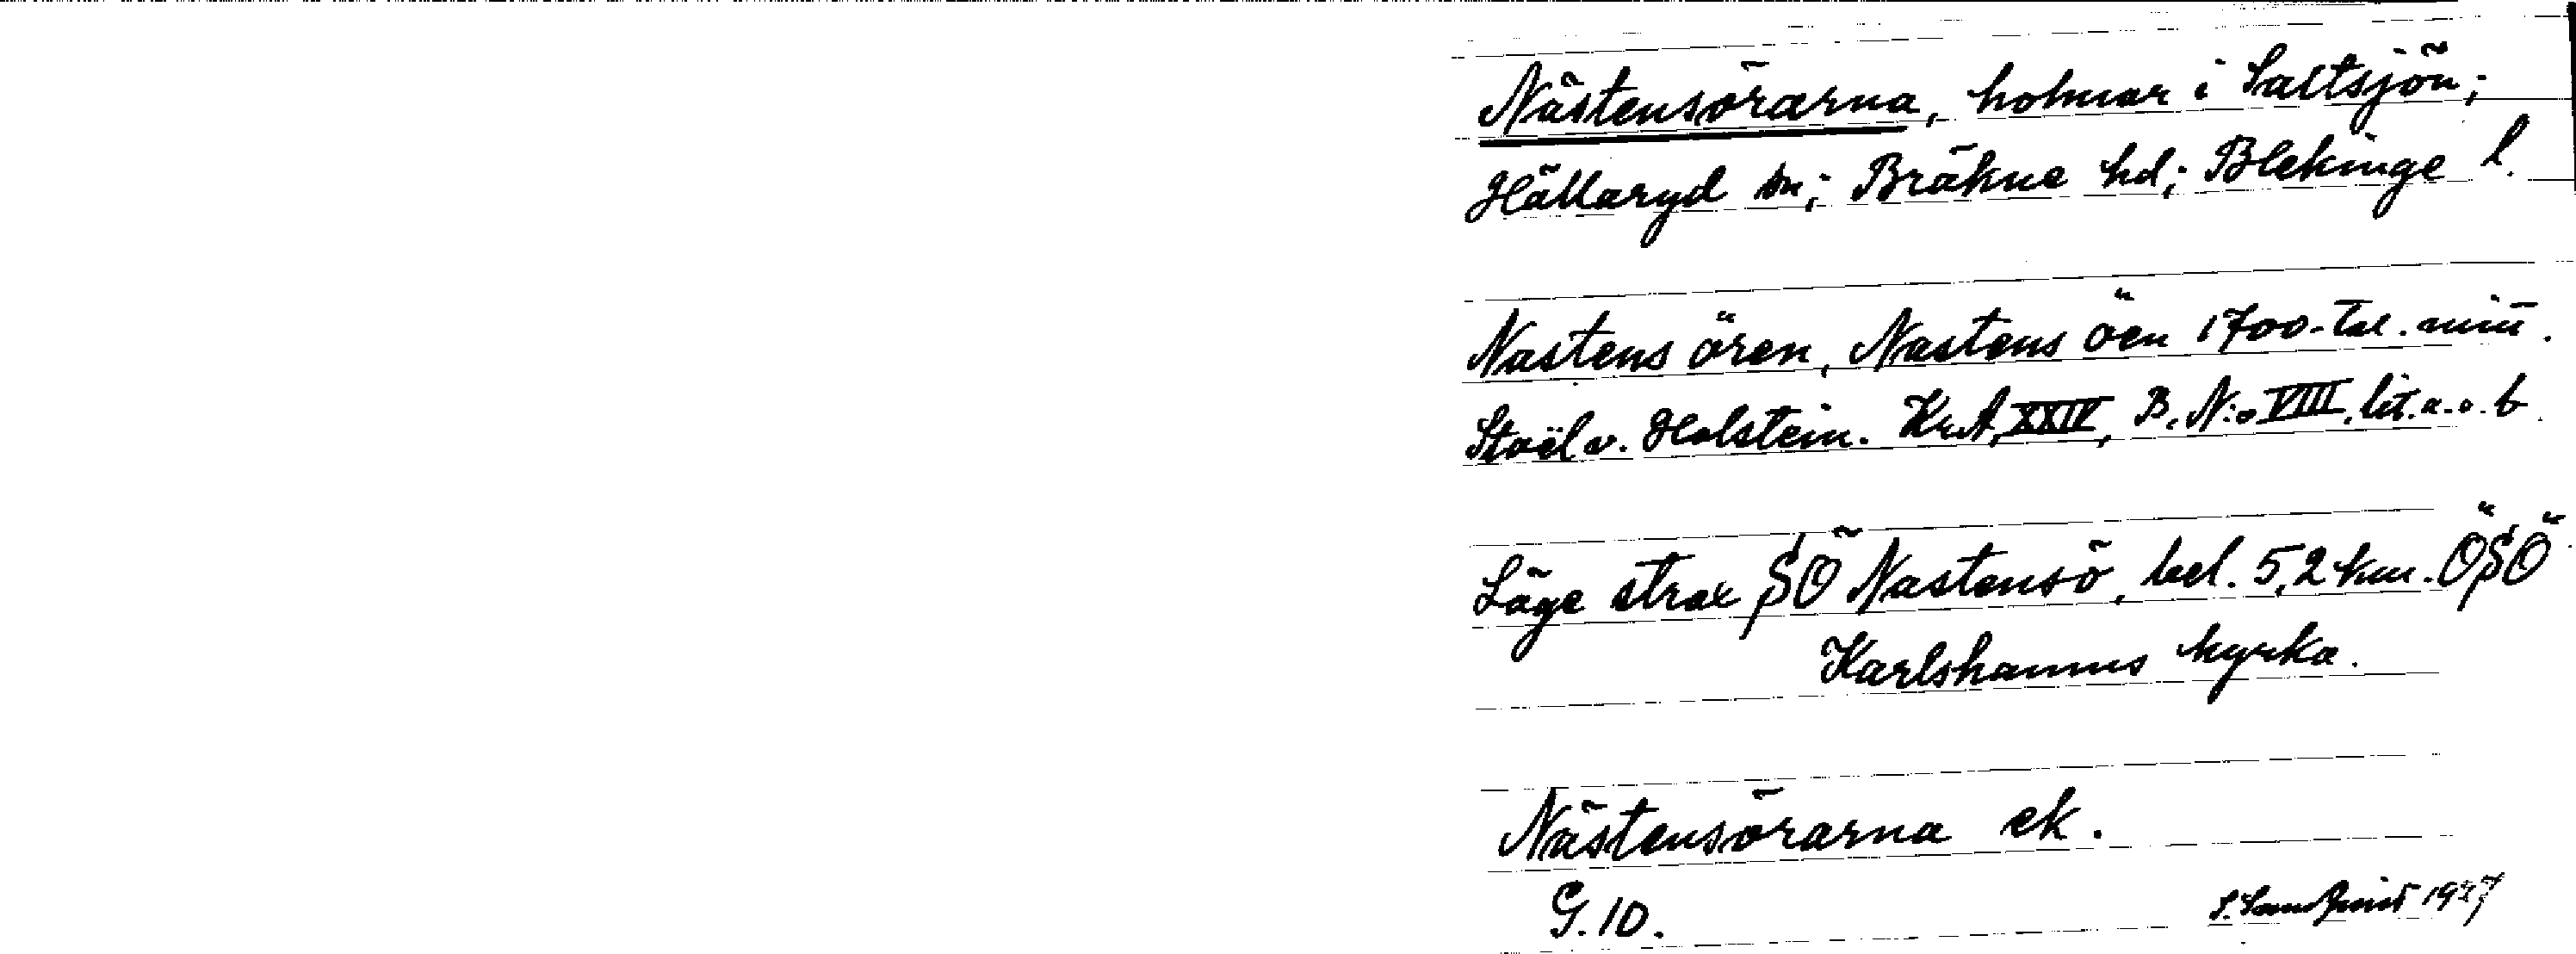 Nästensörarna, holmar i Saltsjön;
Hällaryd sn; Bräkne hd; Blekinge l.
Nastens ören, Nastens öen 1700-tal. mitt.
Staël v. Holstein. KrA, XXIV, B. N:o VIII, lit. a. o. b.
Läge strax SÖ Nastensö, bel. 5,2 km. ÖSÖ
Karlshamns kyrka.
Nästensörarna ek.
G. 10.
S. Sandquist 1927